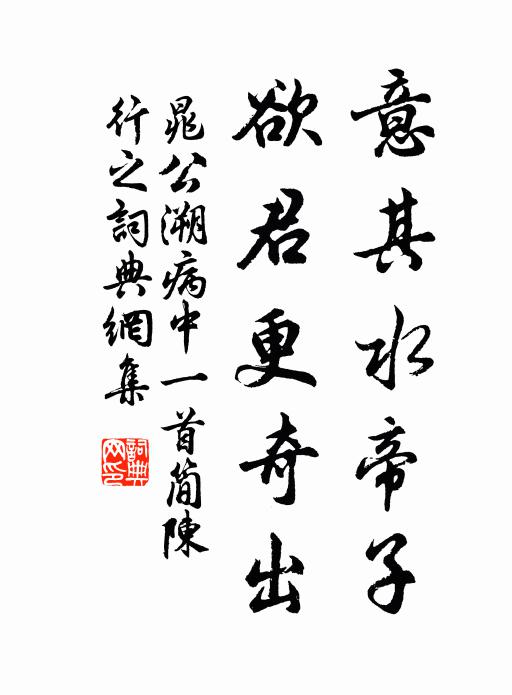 意其水帝子
欲君更奇出
晁公溯病中一首簡陳
行之詞典網集
詞典網印